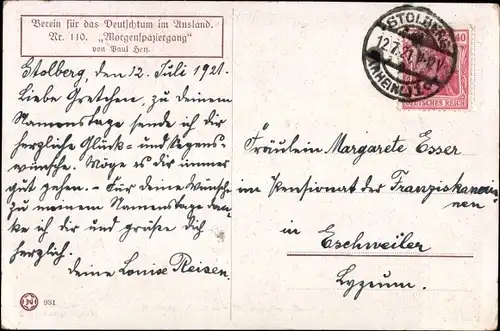 Verein für das Deutschtum im Ausland.
Nr. 110. „Morgenspaziergang"
von Paul Hey.
Stolberg, den 12. Juli 1921.
Liebe Gretchen, zu deinem
Namenstage sende ich dir
herzliche Glück- und Segens-
wünsche. Möge es dir immer
gut gehen. - Für deine Wünsche
zu meinem Namenstage dan-
ke ich dir und grüße dich
herzlich.
deine Louise Reisen.
931
STOLBERG
12.7.21
(RHEINL)
40
DEUTSCHES REICH
Fräulein Margarete Esser
im Pensionat der Franziskanerin-
nen
in
Eschweiler
Lyzeum.